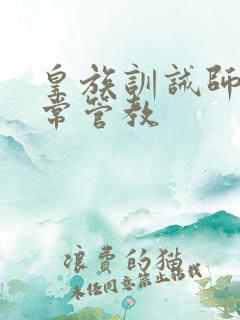 皇族訓誡師
常管教
浪費的猫
未经同意禁止转载